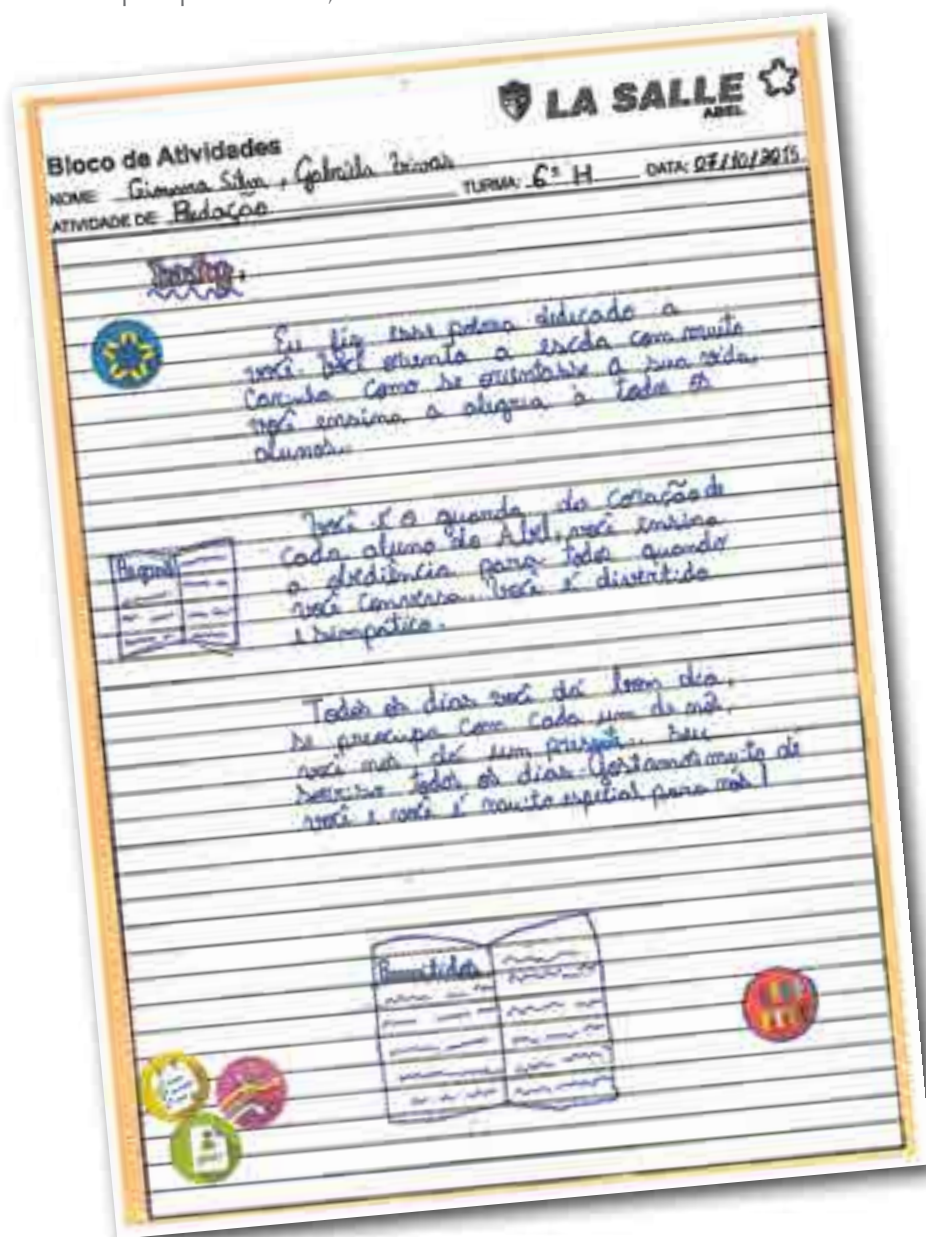 LA SALLE
ABEL
Bloco de Atividades
NOME: Giovanna Silva, Gabriela
TURMA: 6º H DATA: 07/10/2015
ATIVIDADE DE: Redação
Eu fiz esse poema dedicado a
você. Você orienta a escola com muito
carinho como se orientasse a sua vida,
você ensina a alegria à todos os
alunos.
Você é o guarda do coração de
cada aluno do Abel, você ensina
a obediência para todos quando
você conversa. Você é divertido
e simpático.
Todos os dias você dá bom dia,
se preocupa com cada um de nós,
você nos dá um presente. Seu
sorriso todos os dias. Gostamos muito de
você e você é muito especial para nós!